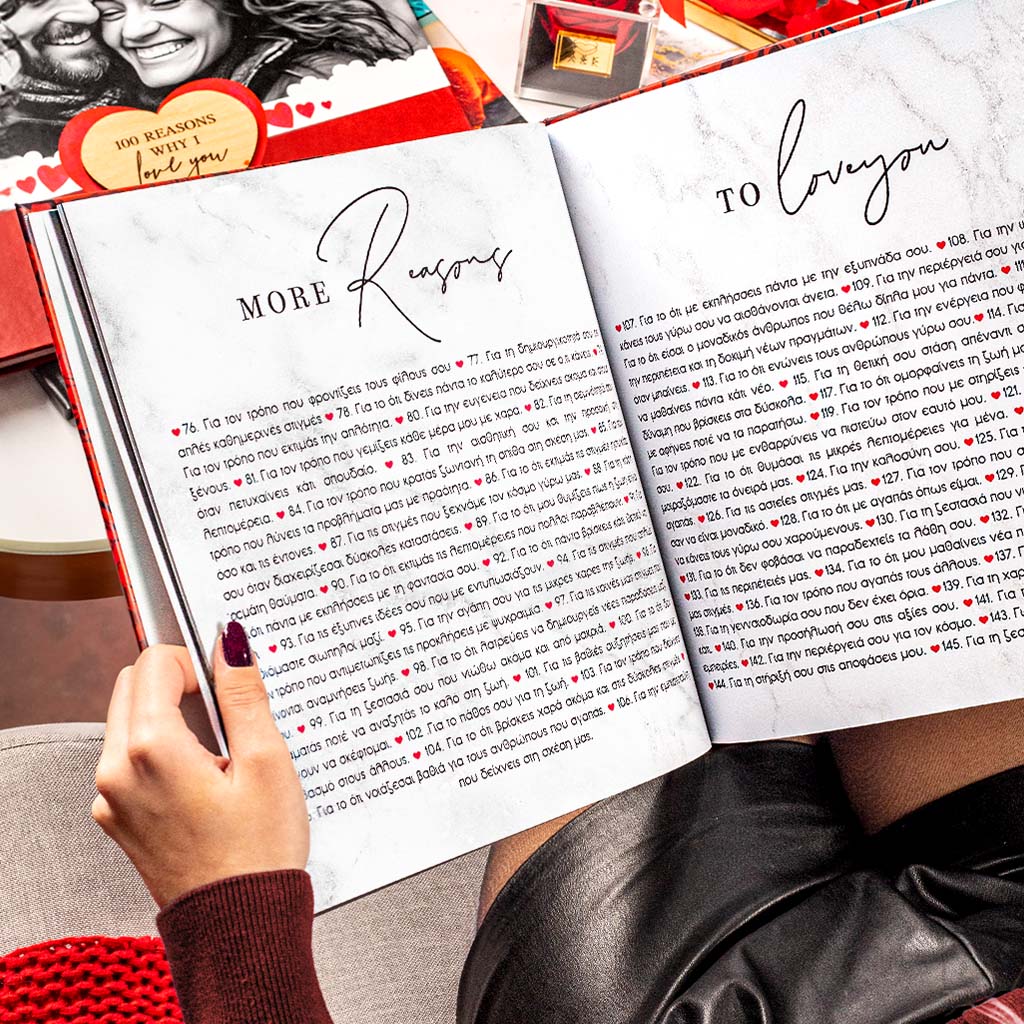 100 REASONS
WHY I
love you
MORE Reasons
♥76. Για τον τρόπο που φροντίζεις τους φίλους σου ♥ 77. Για τη δημιουργικότητά σου
απλές καθημερινές στιγμές ♥ 78. Για το ότι δίνεις πάντα το καλύτερο σου σε ό,τι κάνεις
Για τον τρόπο που εκτιμάς την απλότητα. ♥ 80. Για την ευγένεια που δείχνεις ακόμα και στους
ξένους. ♥ 81. Για τον τρόπο που γεμίζεις κάθε μέρα μου με χαρά. ♥ 82. Για τη
όταν πετυχαίνεις κάτι σπουδαίο. ♥ 83. Για την αισθητική σου και την προσοχή στη
λεπτομέρεια. ♥ 84. Για τον τρόπο που κρατάς ζωντανή τη σπίθα στη σχέση μας. ♥ 85. Για τον
τρόπο που λύνεις τα προβλήματά μας με πραότητα. ♥ 86. Για το ότι εκτιμάς τις στιγμές
όσο και τις έντονες. ♥ 87. Για τις στιγμές που ξεχνάμε τον κόσμο γύρω μας. ♥ 88. Για τη
σου όταν διαχειρίζεσαι δύσκολες καταστάσεις. ♥ 89. Για το ότι μου θυμίζεις πως η ζωή
θαύματα. ♥ 90. Για το ότι εκτιμάς τις λεπτομέρειες που πολλοί παραβλέπουν.
ότι πάντα με εκπλήσσεις με τη φαντασία σου. ♥ 92. Για το ότι πάντα βρίσκεις
♥ 93. Για τις έξυπνες ιδέες σου που με εντυπωσιάζουν. ♥ 94. Για τις στιγμές που
σιωπηλοί μαζί. ♥ 95. Για την αγάπη σου για τις μικρές χαρές της ζωής.
τρόπο που αντιμετωπίζεις τις προκλήσεις με ψυχραιμία. ♥ 97. Για τις κοινές μας στιγμές που
αναμνήσεις ζωής. ♥ 98. Για το ότι λατρεύεις να δημιουργείς νέες παραδόσεις
♥ 99. Για τη ζεστασιά σου που νιώθω ακόμα και από μακριά. ♥ 100. Για το ότι δεν
ποτέ να αναζητάς το καλό στη ζωή. ♥ 101. Για τις βαθιές συζητήσεις μας που με
να σκέφτομαι. ♥ 102. Για το πάθος σου για τη ζωή. ♥ 103. Για τον τρόπο που δείχνεις
στους άλλους. ♥ 104. Για το ότι βρίσκεις χαρά ακόμα και στις δύσκολες στιγμές. ♥
Για το ότι νοιάζεσαι βαθιά για τους ανθρώπους που αγαπάς. ♥ 106. Για την εμπιστοσύνη
που δείχνεις στη σχέση μας.
TO love you
♥107. Για το ότι με εκπλήσσεις πάντα με την εξυπνάδα σου. ♥108. Για την
κάνεις τους γύρω σου να αισθάνονται άνετα. ♥109. Για την περιέργειά σου για
Για το ότι είσαι ο μοναδικός άνθρωπος που θέλω δίπλα μου για πάντα. ♥
την περιπέτεια και τη δοκιμή νέων πραγμάτων. ♥ 112. Για την ενέργεια που
όταν μπαίνεις. ♥ 113. Για το ότι ενώνεις τους ανθρώπους γύρω σου. ♥ 114. Για
να μαθαίνεις πάντα κάτι νέο. ♥ 115. Για τη θετική σου στάση απέναντι
δύναμη που βρίσκεις στα δύσκολα. ♥ 117. Για το ότι ομορφαίνεις τη ζωή
με αφήνεις ποτέ να τα παρατήσω. ♥119. Για τον τρόπο που με στηρίζεις
Για τον τρόπο που με ενθαρρύνεις να πιστεύω στον εαυτό μου. ♥ 121.
σου. ♥122. Για το ότι θυμάσαι τις μικρές λεπτομέρειες για μένα. ♥
μοιραζόμαστε τα όνειρά μας. ♥124. Για την καλοσύνη σου. ♥125. Για
αγαπάς. ♥126. Για τις αστείες στιγμές μας. ♥127. Για τον τρόπο που
σαν να είναι μοναδικό. ♥128. Για το ότι με αγαπάς όπως είμαι. ♥129.
να κάνεις τους γύρω σου χαρούμενους. ♥130. Για τη ζεστασιά που
♥131. Για το ότι δεν φοβάσαι να παραδεχτείς τα λάθη σου. ♥132.
♥133. Για τις περιπέτειές μας. ♥134. Για το ότι μου μαθαίνεις νέα
μας στιγμές. ♥136. Για τον τρόπο που αγαπάς τους άλλους. ♥137.
138. Για τη γενναιοδωρία σου που δεν έχει όρια. ♥139. Για τη
κάτι. ♥140. Για την προσήλωσή σου στις αξίες σου. ♥141. Για
εμπειρίες. ♥142. Για την περιέργειά σου για τον κόσμο. ♥143.
♥144. Για τη στήριξή σου στις αποφάσεις μου. ♥145. Για τη